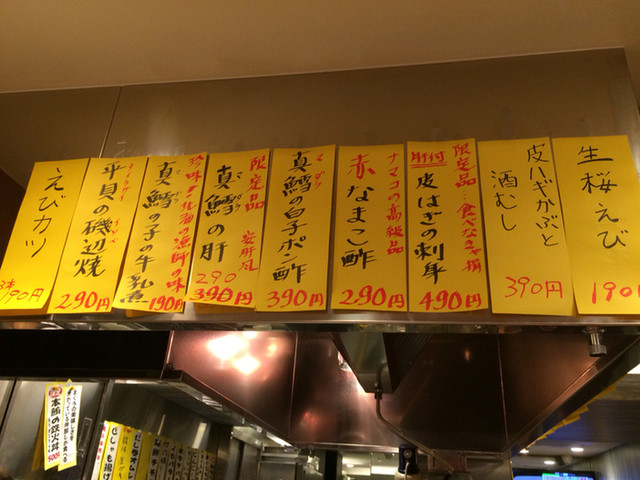 生桜えび
190円
皮ハギかぶと
酒むし
390円
限定品…食べなきゃ損
肝付
皮はぎの刺身
490円
ナマコの高級品
赤なまこ酢
290円
マダラ
真鱈の白子ポン酢
390円
限定品
安肝風
真鱈の肝
290
390円
珍味!北海の漁師の味
真鱈の子の牛乳煮
190円
平貝の磯辺焼
290円
えびカツ
3本
190円
本鮪の鉄火丼
500円